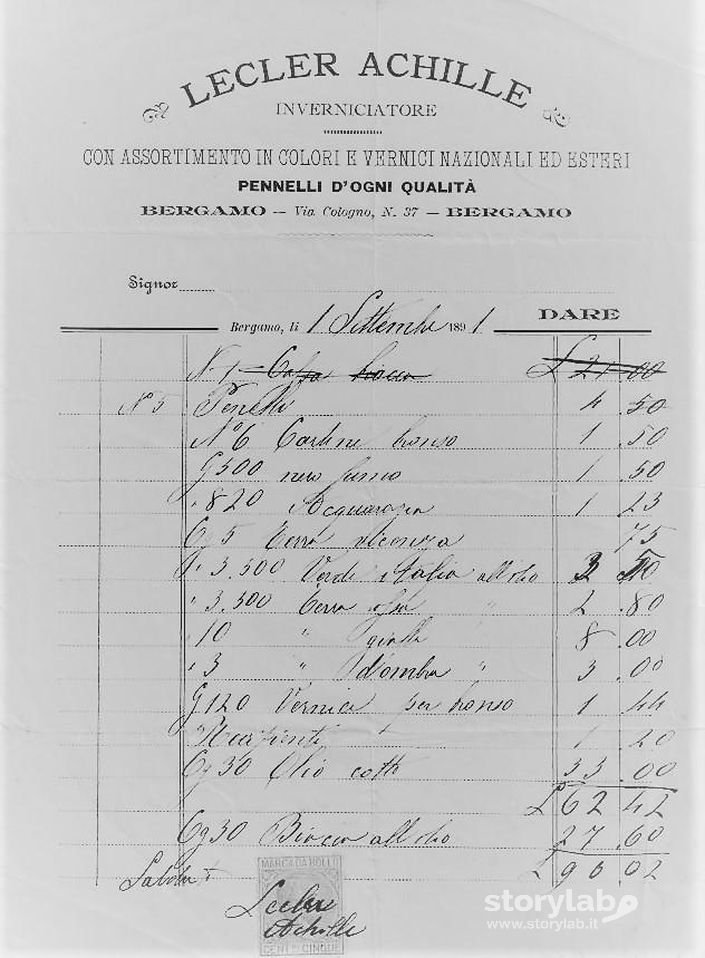 LECLER ACHILLE
INVERNICIATORE
CON ASSORTIMENTO IN COLORI E VERNICI NAZIONALI ED ESTERI
PENNELLI D'OGNI QUALITÀ
BERGAMO — Via Cologno, N. 37 — BERGAMO
Signor
Bergamo, li 1 Settembre 1891 DARE
N. 1 £ 21 00
N° 5 Penelli 4 .50
N° 6 Cartine bronso 1 .50
G 500 nero fumo 1 .50
" 820 Acquaragia 1 23
Cg 5 Terra 75
" 3.500 Verde Italia all'olio
" 3.500 Terra " 2 .80
" 10 " gialla 8 .00
" 3 " d'ombra " 3 .00
G 120 Vernice per bronso 1 .44
" Recipienti 1 20
Cg 30 Olio cotto 33 .00
£ 62 42
Cg 30 Biacca all'olio 27 .60
£ 90 .02
MARCA DA BOLLO
Lecler
Achille
CENT. CINQUE
storylab
www.storylab.it